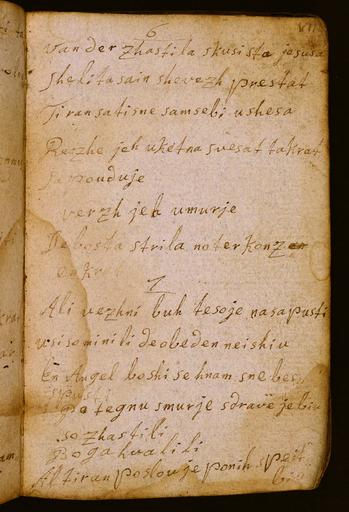 6
vander zhastila skusista jesusa
shelitasain shevezh prestat
Tiran satisne samsebi ushesa
Rezhe jeh uketna svesat takrat
sapouduje
verzh jeh umurje
De bosta strila noter konz
7
Ali vezhni buh te soje nasapusti
usi so minili de obeden nei shiu
En Angel boshi se hnam sne bes
spusti
pa tegnu smurje sdrave je biu
so zhastili
Boga hualili
Al tiran poslou je ponih speit